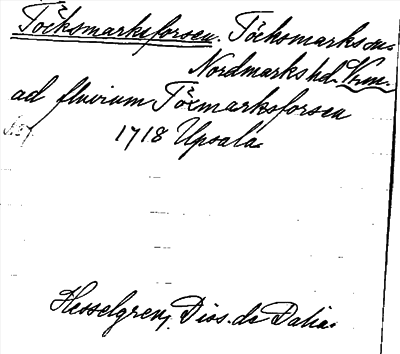 Töcksmarksforsen. Töcksmarks sn.
Nordmarks hd. Vrm.
ad fluvium Töcmarksforsen
s. 37.
1718 Upsala.
Hesselgren, Diss. de Dalia.